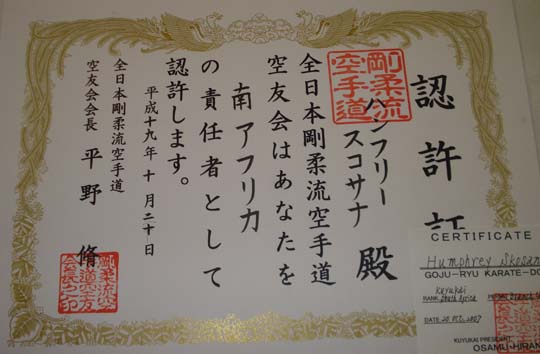 認許証
ハンフリー
スコサナ 殿
全日本剛柔流空手道
空友会はあなたを
南アフリカ
の責任者として
認許します。
平成十九年十月二十日
全日本剛柔流空手道
空友会会長 平野 脩
剛柔流
空手道
CERTIFICATE
Humphrey Skosan
GOJU-RYU KARATE-DO
Kuyukai
RANK South Africa
DATE 20 Oct. 2007
KUYUKAI PRESIDENT
OSAMU-HIRAN